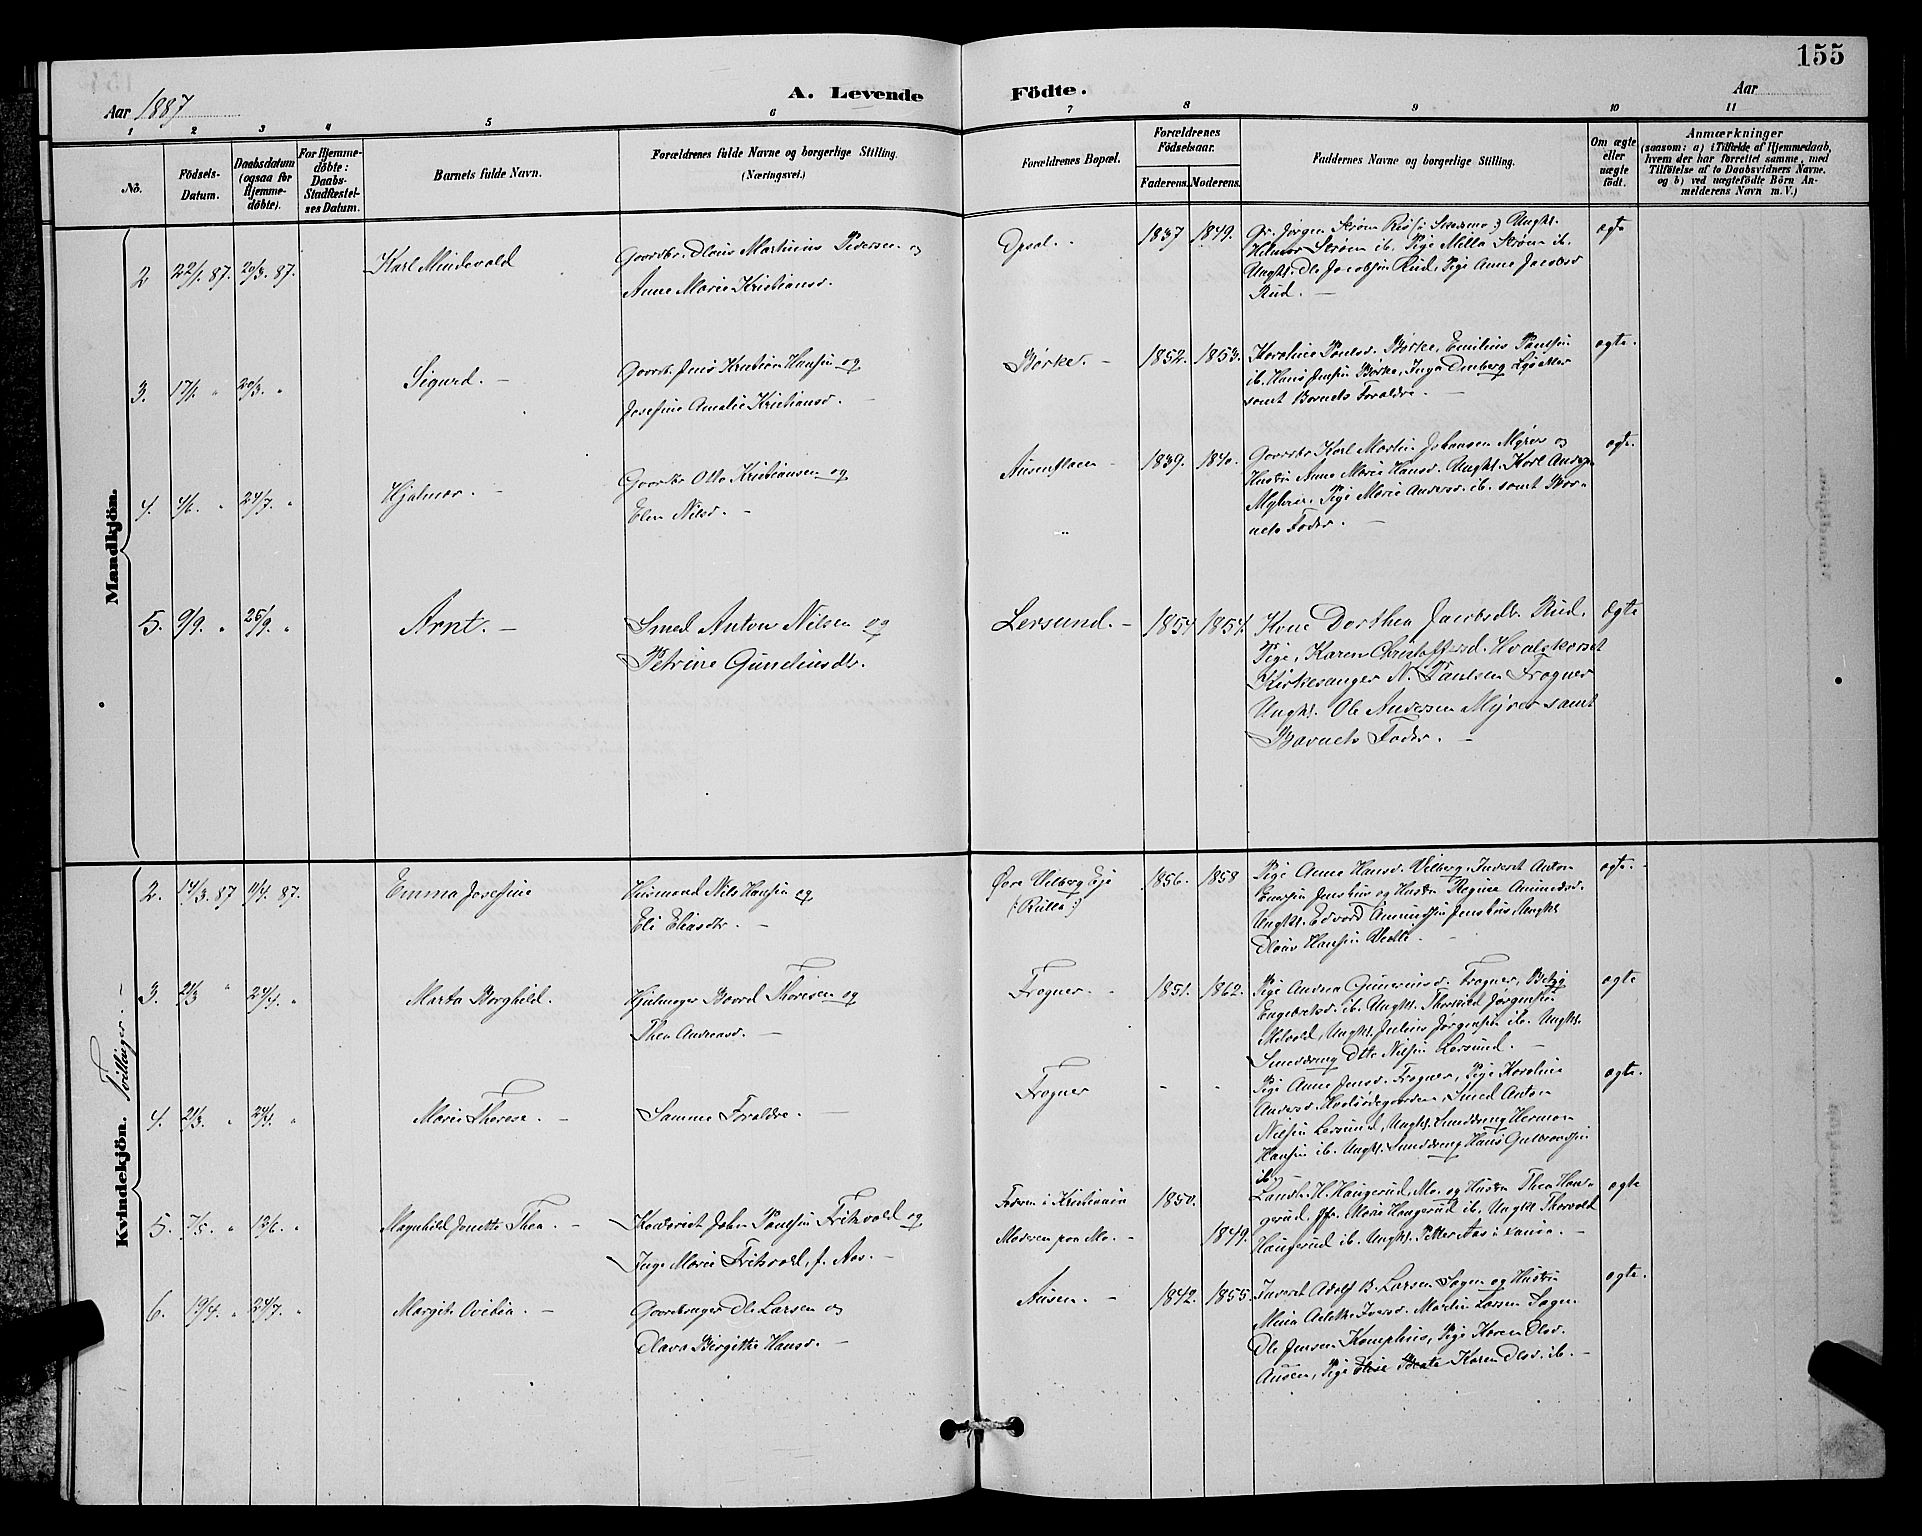 155
Aar 1887
A. Levende Födte.
Aar
1 2 3 4 5 6 7 8 9 10 11
No.
Födsels-Datum.
Daabsdatum (ogsaa for Hjemme-döbte).
For Hjemme-döbte: Daabs-Stadfæstel-ses Datum.
Barnets fulde Navn.
Forældrenes fulde Navne og borgerlige Stilling. (Næringsvei.)
Forældrenes Bopæl.
Forældrenes Födselsaar.
Faderens. Moderens.
Faddernes Navne og borgerlige Stilling.
Om ægte eller uægte født.
Anmærkninger
(saasom: a) i Tilfælde af Hjemmedaab, hvem der har forrettet samme, med Tilföielse af to Daabsvidners Navne, og b) ved uægtefödte Börn An-melderens Navn m. V.)
Mandkjön.
2 22/1. 87. 20/3. 87. Karl Mindevald
Gaardbr. Olaus Martinius Pedersen og
Anne Marie Kristiansd.
Opsal. 1837 1849.
Gr. Jørgen Strøm Ris Ungk.
Hilmar Strøm ib. Pige Milla Strøm ib.
Ungk. Ole Jacobsen Rud, Pige Anne Jacobsd
Rud. —
ægte
3. 17/1. " 20/3. " Sigurd. —
Gaardb. Jens Kristian Hansen og
Josefine Amalie Kristiansd. —
Børke. — 1852. 1853.
Karoline Paulsd. Børke, Emilius Paulsen
ib. Hans Jensen Børke, Inga Dmberg
samt Barnets Forældre. —
ægte.
4. 4/6. " 24/7. " Hjalmar. —
Gaardbr Otto Kristiansen og
Elen Nilsd. —
— 1839. 1840.
Gaardbr. Karl Martin Johansen Myrer og
Hustru Anne Marie Hansd. Ungk. Karl Anders.
Myhrer. Pige Marie Andersd. ib. samt Bar-
nets Fader. —
ægte.
5. 9/9. " 25/9. " Arnt. —
Smed Anton Nilsen og
Petrine Gundiusdtr.
Lersund. — 1854 1854.
Kone Dorthea Jacobsdtr. Rud.
Pige, Karen Christoffersd. Hvalskorset
Kirkesanger N. Paulsen Frogner
Ungk. Ole Andersen Myrer samt
Barnets Fader. —
Ægte
Kvindekjön.
Tvillinger. —
2. 14/3. 87 11/4. 87. Emma Josefine
Husmand Nils Hansen og
Eli Eliasdtr. —
Øvre Velberg Eje
(: Rulla :)
1856. 1858
Pige Anne Hansd. Vilberg, Inderst Anton
Hustru Regine Amundsd.
Ungk. Edvard Amundsen Jensbus, Ungk.
Olaus Hansen Vedti. —
ægte. -
3. 21/3 " 24/4. " Marta Borghild.
Hjulmager Baard Thoresen og
Thea Andreasd. —
Frogner. — 1851. 1862.
Pige Andrea Guneriusd. Frogner, Birgg
Engebretsd. ib. Ungk. Thorvald Jørgensen
Melvold, Ungk. Julius Jørgensen ib. Ungk.
Smeddreng Otto Nilsen Lersund. —
ægte
4. 21/3. " 24/4. " Marie Therese. —
Samme Foraldre. —
Frogner - -
Pige Anne Jensd. Frogner, Pige Karoline
Andersd. Smed Anton
Nilsen Lersund, Ungk. Smeddreng Herman
Hansen ib. Ungk. Smeddreng Hans Gulbrandsen
ib.
ægte.
5. 7/5. " 19/6. " Magnhild Janette Thea. —
John Paulsen Fritzvold og
Inge Marie Fritzvold, f. Aas. —
Faderen i Kristiania 1850.
Moderen paa Mo. — 1849.
Landh. H. Haugerud, Mo. og Hustru Thea Hau-
gerud, Jfr. Marie Haugerud ib. Ungk Thorvald
Haugerud ib. Ungk. Petter Aas i Xania. —
ægte
6. 19/4. " 24/7. " Margit Ovidia. —
Gaardbruger Ole Larsen og
Olava Birgitte Hansd. —
Ausen. — 1842. 1855.
Inderst Adolf B. Larsen Sogn og Hustru
Mina Iversd. Martin Larsen Sogn
Ole Jensen Komphus, Pige Karen Olsd.
Ausen, Pige Beate Karen Olsd. ib. —
ægte.